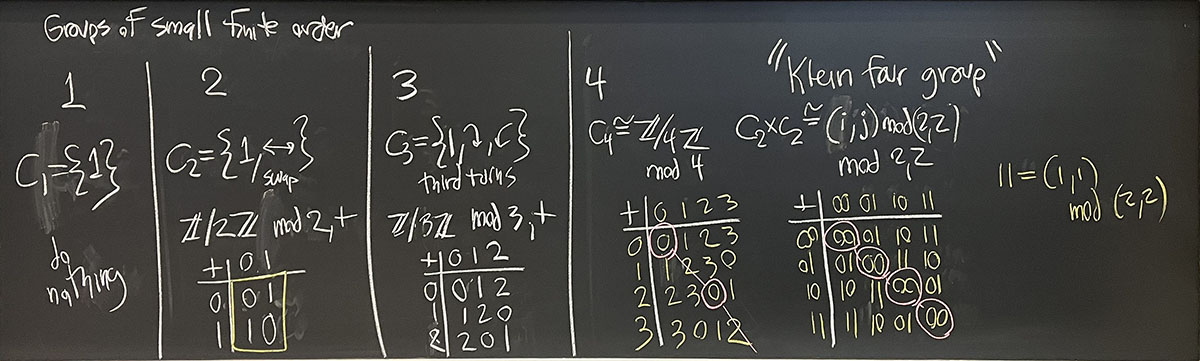 Groups of small finite order
1
C₁={1}
do
nothing
2
C₂={1,↔}
swap
ℤ/2ℤ mod 2,+
+ 0 1
0 0 1
1 1 0
3
C₃={1,↻,↺}
third turns
ℤ/3ℤ mod 3,+
+ 0 1 2
0 0 1 2
1 1 2 0
2 2 0 1
4
C₄≅ℤ/4ℤ
mod 4
+ 0 1 2 3
0 0 1 2 3
1 1 2 3 0
2 2 3 0 1
3 3 0 1 2
"Klein four group"
C₂×C₂≅(i,j) mod(2,2)
mod 2,2
+ 00 01 10 11
00 00 01 10 11
01 01 00 11 10
10 10 11 00 01
11 11 10 01 00
11=(1,1)
mod (2,2)